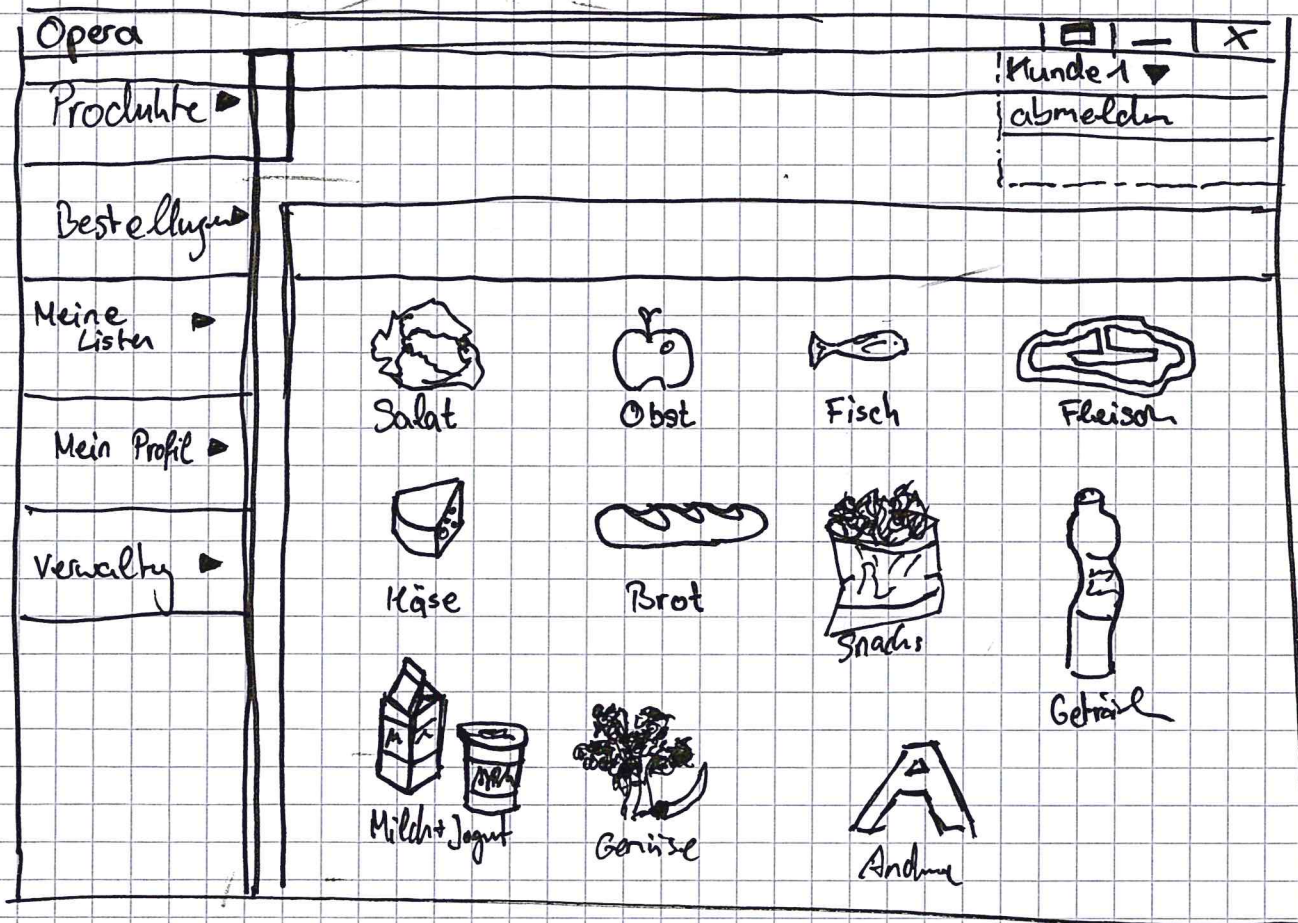 Opera
X
Kunde 1
abmelden
Produkte
Bestellungen
Meine
Listen
Mein Profil
Verwaltung
Salat
Obst
Fisch
Fleisch
Käse
Brot
Snacks
Getränke
Milch + Jogurt
Gemüse
A
Andere